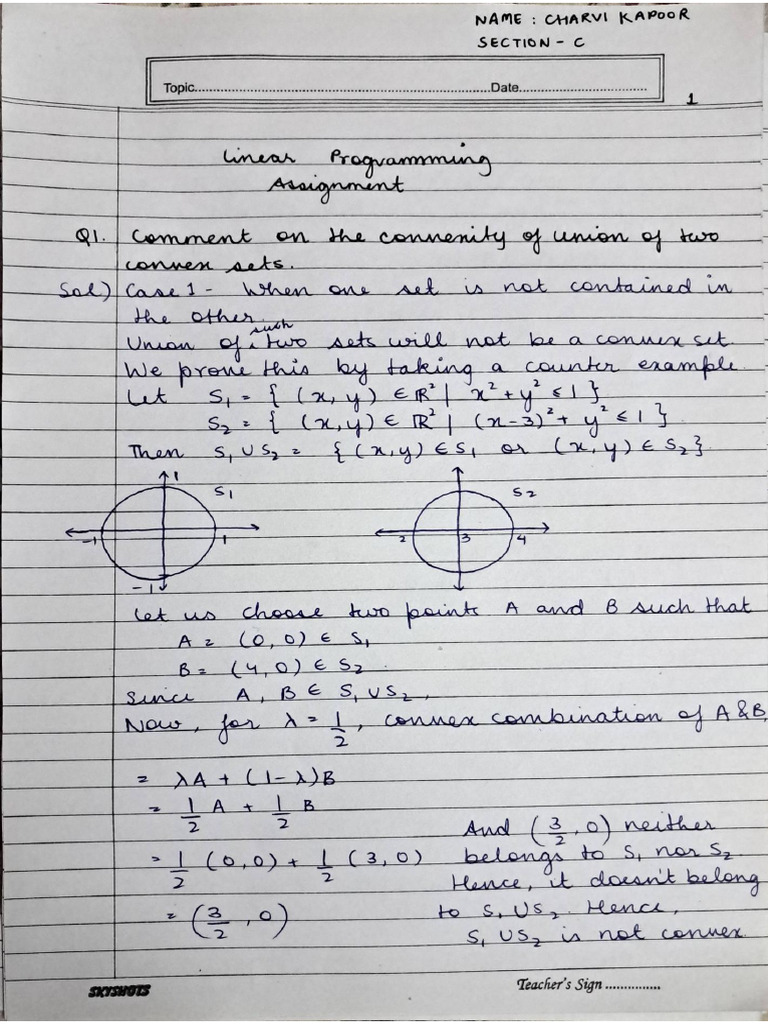 NAME : CHARVI KAPOOR
SECTION - C
Topic.....................................................................Date...............................
1
Linear Programmming
Assignment
Q1. Comment on the convexity of union of two
convex sets.
Sol) Case 1 - When one set is not contained in
the other.
Union of such two sets will not be a convex set.
We prove this by taking a counter example.
Let S₁ = { (x, y) ∈ ℝ² | x² + y² ≤ 1 }
S₂ = { (x, y) ∈ ℝ² | (x-3)² + y² ≤ 1 }
Then S₁ ∪ S₂ = { (x, y) ∈ S₁ or (x, y) ∈ S₂ }
1 S₁ S₂
-1 1 2 3 4
-1
Let us choose two points A and B such that
A = (0, 0) ∈ S₁
B = (4, 0) ∈ S₂.
Since A, B ∈ S₁ ∪ S₂,
Now, for λ = 1/2, convex combination of A & B,
= λA + (1-λ)B
= 1/2 A + 1/2 B
= 1/2 (0, 0) + 1/2 (3, 0)
= (3/2, 0)
And (3/2, 0) neither
belongs to S₁ nor S₂
Hence, it doesn't belong
to S₁ ∪ S₂. Hence,
S₁ ∪ S₂ is not convex.
SKYSHOTS
Teacher's Sign ...............